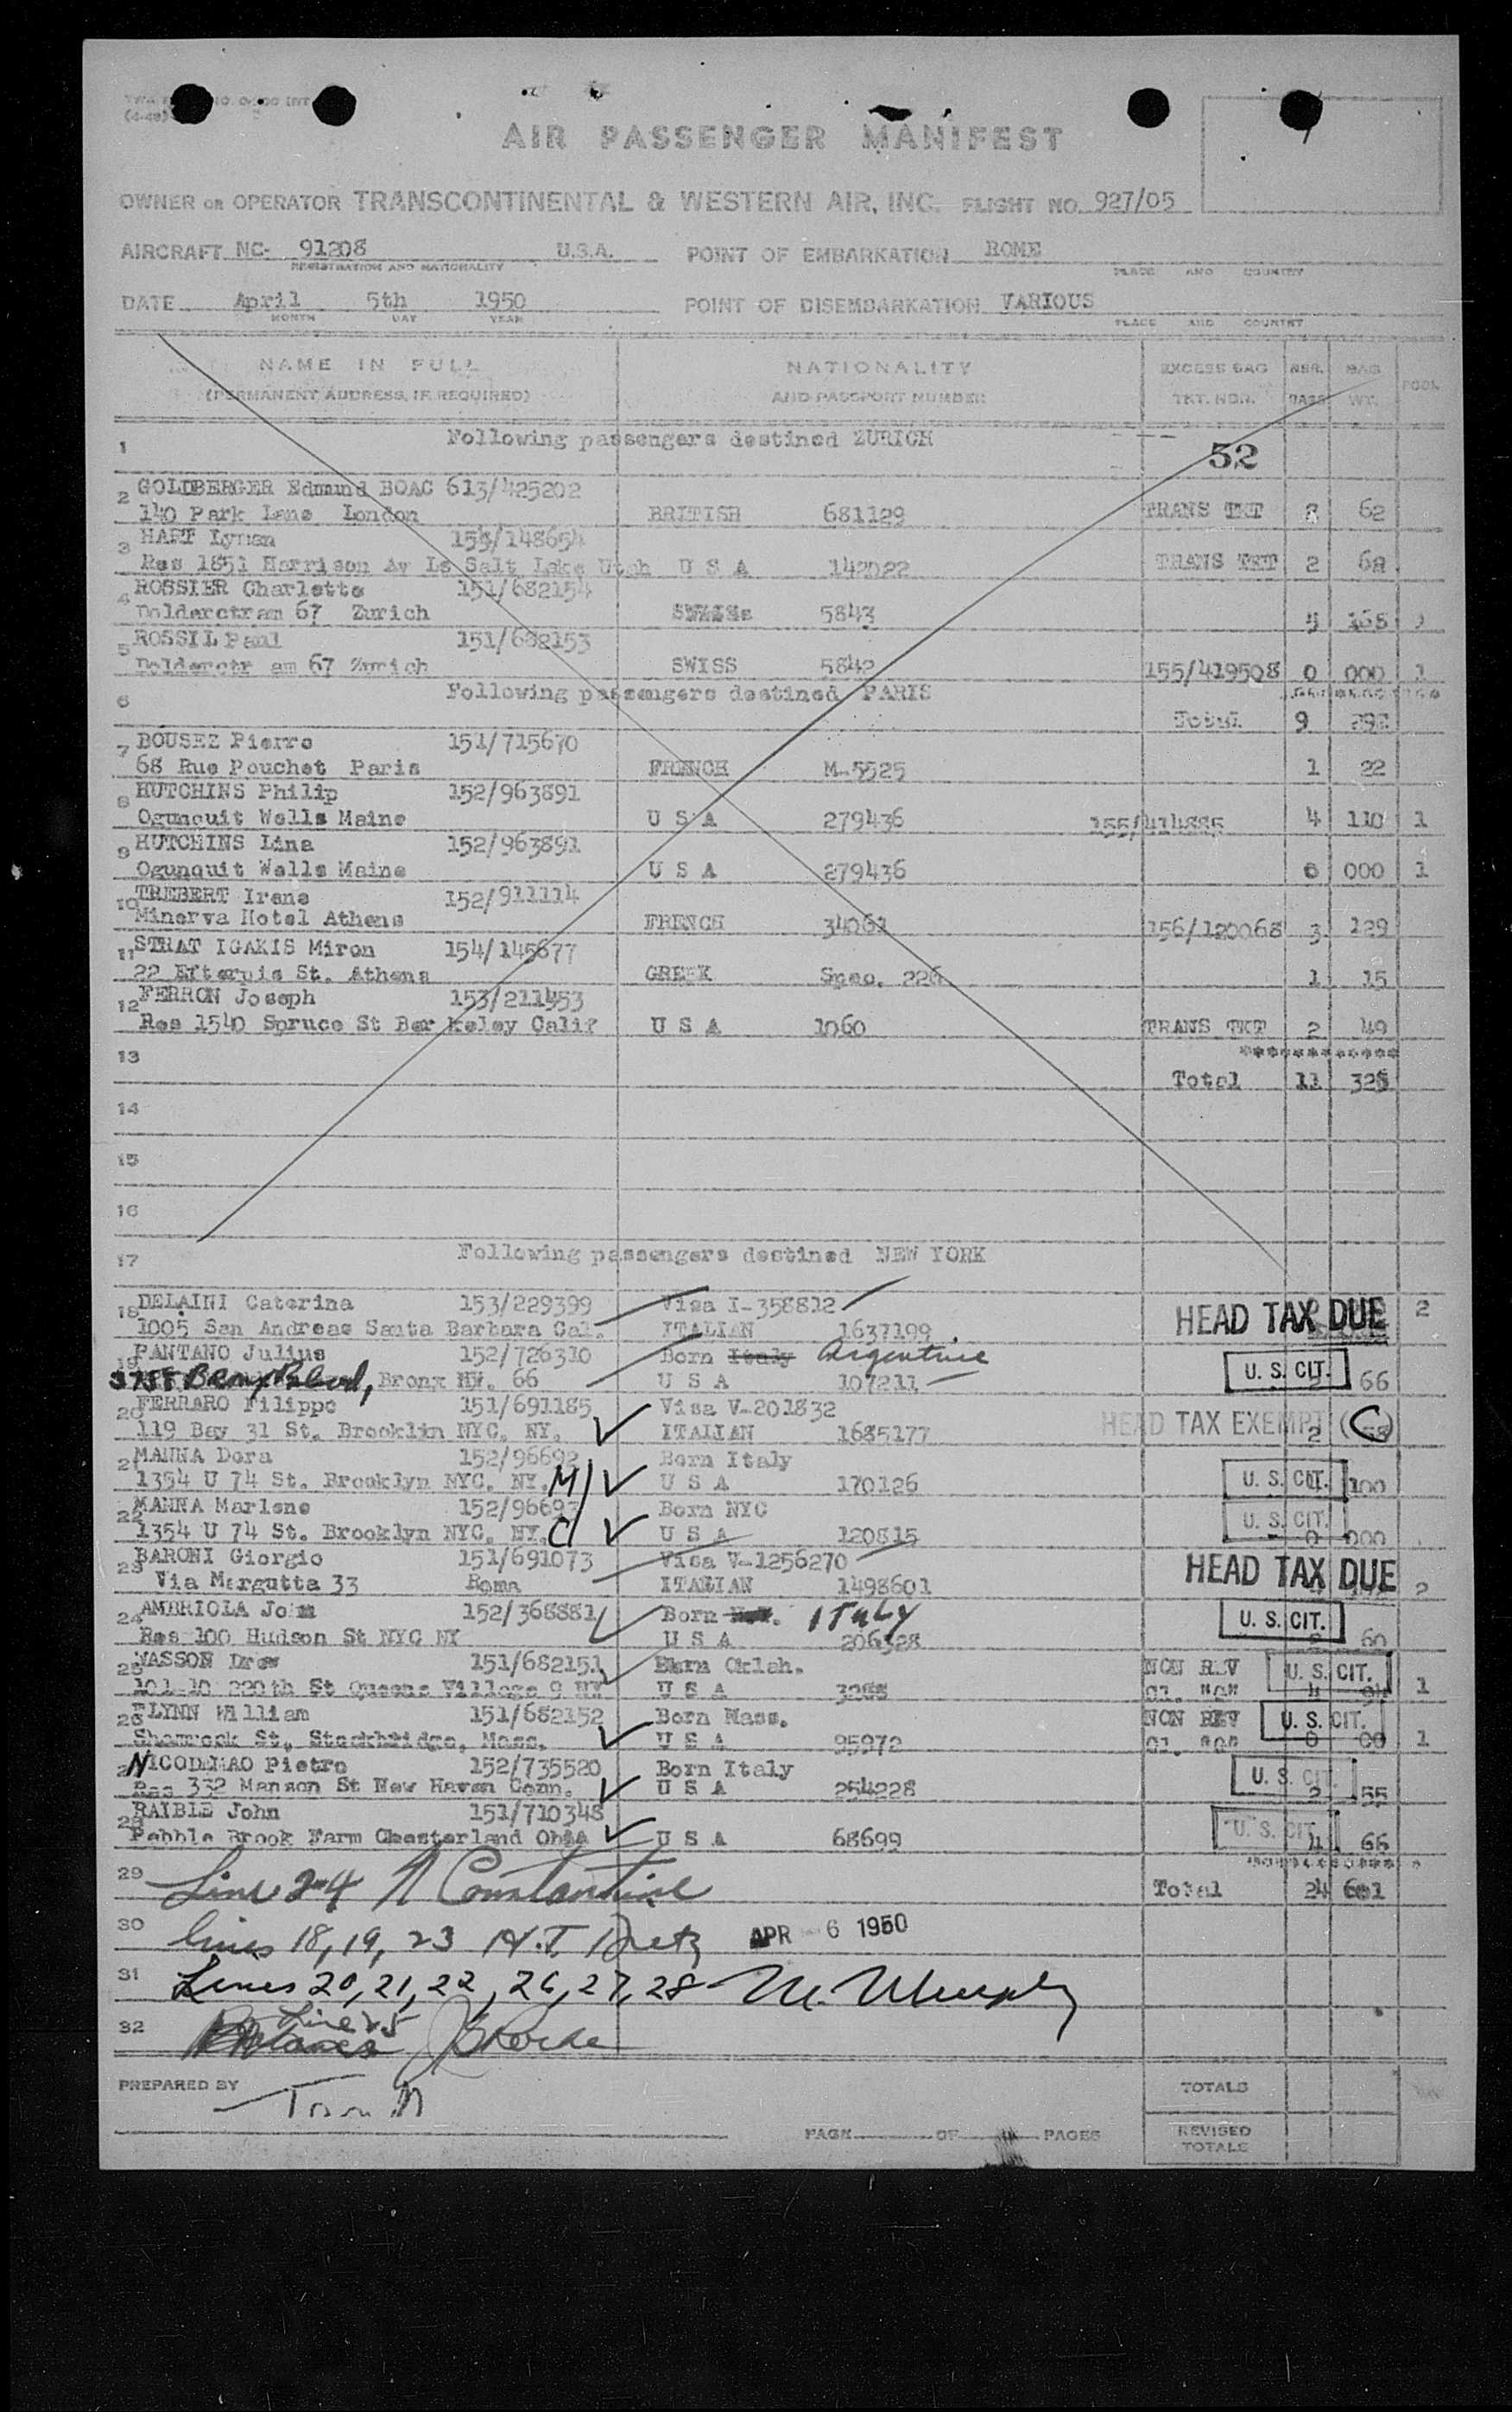 AIR PASSENGER MANIFEST
OWNER OR OPERATOR TRANSCONTINENTAL & WESTERN AIR, INC. FLIGHT NO. 927/05
AIRCRAFT NC- 91208 U.S.A. POINT OF EMBARKATION ROME
REGISTRATION AND NATIONALITY PLACE AND COUNTRY
DATE April 5th 1950 POINT OF DISEMBARKATION VARIOUS
MONTH DAY YEAR PLACE AND COUNTRY
NAME IN FULL NATIONALITY EXCESS BAG NBR. BAG POOL
(PERMANENT ADDRESS, IF REQUIRED) AND PASSPORT NUMBER TKT. NBR. BAGS WT.
1 Following passengers destined ZURICH 52
2 GOLDBERGER Edmund BOAC 613/425202
140 Park Lane London BRITISH 681129 TRANS TKT 2 62
3 HART Lyman 153/148654
Res 1851 Harrison Av Le Salt Lake Utah U S A 142022 TRANS TKT 2 68
4 ROSSIER Charlette 151/682154
Dolderstram 67 Zurich 5843 5
5 151/682153
am 67 Zurich SWISS 5842 155/419508 0 000 1
6 Following passengers destined PARIS
Total 9 292
7 BOUSEZ Pierre 151/715670
68 Rue Pouchet Paris FRENCH M-5525 1 22
8 HUTCHINS Philip 152/963891
Ogunquit Wells Maine U S A 279436 155/414885 4 110 1
9 HUTCHINS Lina 152/963891
Ogunquit Wells Maine U S A 279436 0 000 1
10 TREBERT Irene 152/911114
Minerva Hotel Athens FRENCH 34061 156/120068 3 129
11 STRAT IGAKIS Miron 154/145677
22 Efterpis St. Athens GREEK Spec. 226 1 15
12 FERRON Joseph 153/211453
Res 1540 Spruce St Ber keley Calif U S A 1060 TRANS TKT 2 49
13 ************
Total 11 325
14
15
16
17 Following passengers destined NEW YORK
18 DELAINI Caterina 153/229399 Visa I-358812
1005 San Andreas Santa Barbara Cal. ITALIAN 1637199 HEAD TAX DUE 2
19 PANTANO Julius 152/726310 Born Italy Argentine
Bronx NY. 66 U S A 107211 U. S. CIT. 66
20 FERRARO Filippo 151/691185 Visa V-201832
119 Bay 31 St. Brooklin NYC. NY. ITALIAN 1685177 HEAD TAX EXEMPT (C) 2
21 MANNA Dora 152/96692 Born Italy
1354 U 74 St. Brooklyn NYC. NY. M U S A 170126 U. S. CIT. 100
22 MANNA Marlene 152/96693 Born NYC
1354 U 74 St. Brooklyn NYC. NY. C U S A 120815 U. S. CIT. 0 000
23 BARONI Giorgio 151/691073 Visa V-1256270
Via Margutta 33 Roma ITALIAN 1498601 HEAD TAX DUE 2
24 AMBRIOLA John 152/368881 Born ITALY
Res 100 Hudson St NYC NY U S A 206328 U. S. CIT. 60
25 WASSON Drew 151/682151 Born Oklah. NON REV
101-10 220th St Queens Village 9 NY U S A U. S. CIT. 1
26 FLYNN William 151/682152 Born Mass. NON REV
Shamrock St, Stockbridge, Mass. U S A 95972 U. S. CIT. 0 00 1
27 NICODEMAO Pietro 152/735520 Born Italy
Res 332 Manson St New Haven Conn. U S A 254228 U. S. CIT. 2 55
28 RAIBLE John 151/710348
Pebble Brook Farm Chesterland Ohio U S A 68699 U. S. CIT. 4 66
29 Line 24 N Constantine Total 24 601
30 lines 18, 19, 23 H.T. Dietz APR 6 1950
31 Lines 20, 21, 22, 26, 27, 28 M. Murphy
32 Line 25
PREPARED BY
TOTALS
PAGE OF PAGES REVISED
TOTALS